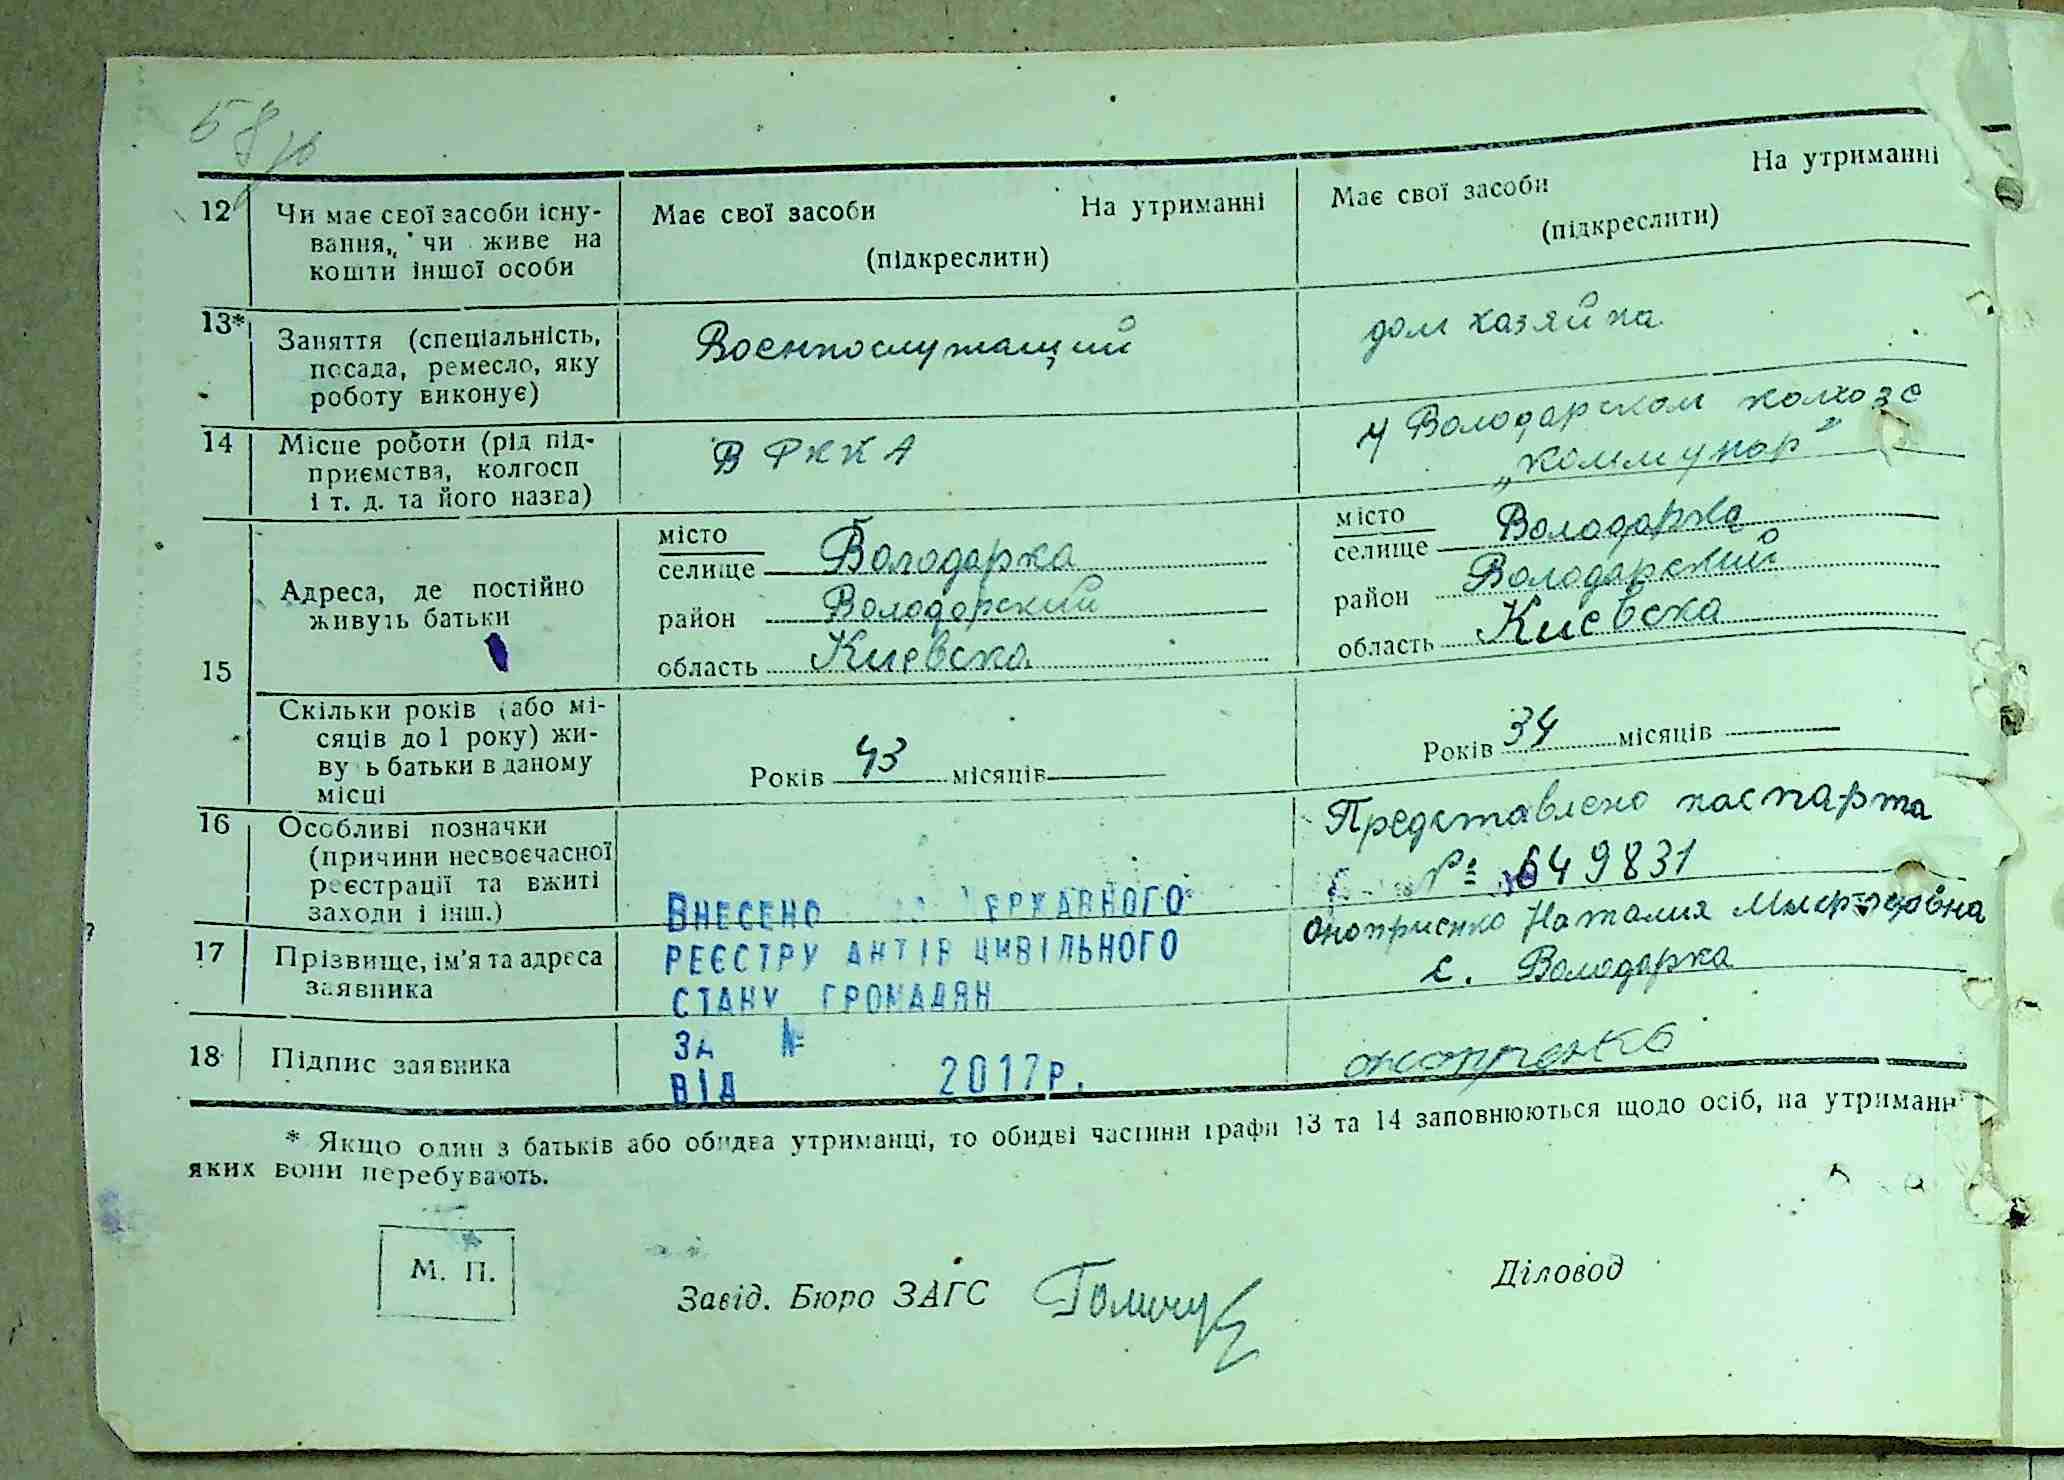 58
12 Чи має свої засоби існу-
вання, чи живе на
кошти іншої особи
Має свої засоби На утриманні
(підкреслити)
Має свої засоби На утриманні
(підкреслити)
13* Заняття (спеціальність,
посада, ремесло, яку
роботу виконує)
Военнослужащий
дом хазяйка
14 Місце роботи (рід під-
приємства, колгосп
і т. д. та його назва)
В РККА
у Володарском колхозе
„коммунар"
15 Адреса, де постійно
живуть батьки
місто
селище Володарка
район Володарский
область Киевска
місто
селище Володарка
район Володарский
область Киевска
Скільки років (або мі-
сяців до 1 року) жи-
ву ь батьки в даному
місці
Років 43 місяців
Років 34 місяців
16 Особливі позначки
(причини несвоєчасної
реєстрації та вжиті
заходи і інш.)
Представлено паспарта
№ 649831
ВНЕСЕНО ДО ДЕРЖАВНОГО
РЕЄСТРУ АКТІВ ЦИВІЛЬНОГО
СТАНУ ГРОМАДЯН
ЗА №
ВІД 2017р.
17 Прізвище, ім'я та адреса
заявника
Оноприенко Наталия
с. Володарка
18 Підпис заявника
* Якщо один з батьків або обидва утриманці, то обидві частини графи 13 та 14 заповнюються щодо осіб, на утриманні
яких вони перебувають.
М. П.
Завід. Бюро ЗАГС
Діловод